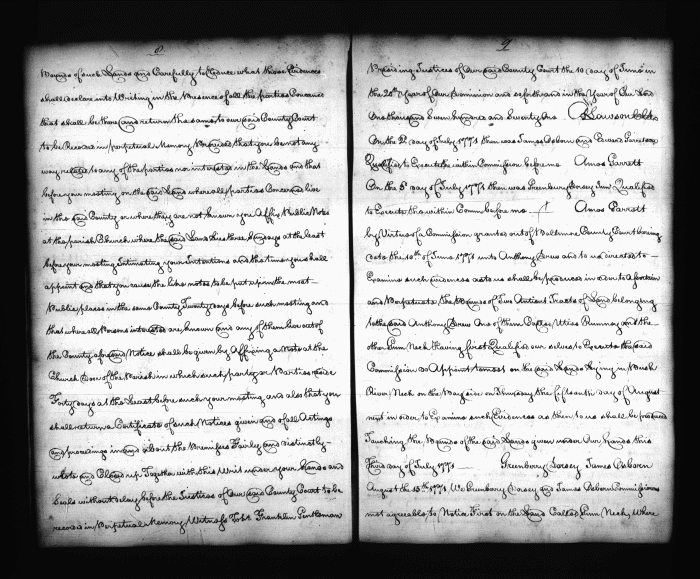 8
Bounds of such Lands and Carefully to Reduce what those Evidences
shall declare into Writing in the Presence of all the parties Concerned
that shall be there and return the same to our said County Court
to be Record in perpetual Memory Provided that you be not any
way related to any of the parties nor interested in the Lands and that
before your meeting on the said Land where all parties Concerned live
in the said County or where they are not known you Affix Public Notes
at the parish Church where the said Land lies three Sundays at the least
before your meeting Intimating your Intentions and the time you shall
appoint and that you cause the like notes to be put up in the most
Public places in the same County Twenty days before such meeting and
that where all Persons interested are known and any of them live out of
the County aforesaid Notice shall be given by Affixing a Note at the
Church Door of the Parish in which such party or Parties reside
Forty days at the Least before such your meeting and also that you
shall return a Certificate of such Notices given and of all Actings
and proceedings in and about the Premises Fairly and distinctly
wrote and Closed up Together with this Writ under your Hands and
Seals without delay before the Justices of Our said County Court to be
record in Perpetual Memory Witness Tobt Franklin Gentleman
9
Presiding Justices of Our said County Court the 10 day of June in
the 20th Year of Our Dominion and so forth and in the Year of Our Lord
One thousand Seven hundred and Seventy One Lawson Clk
On the 2d day of July 1771 then was James Osborn and
Qualified to Execute the within Commission before me Amos Garrett
On the 8th day of July 1771 then was Greenbury Dorsey Junr Qualified
to Execute the within Comm before me Amos Garrett
by Virtue of a Commission granted out of Baltimore County Court bearing
date the 10th of June 1771 into Anthony Drew and to us directed to
Examine such evidences as to us shall be produced in order to Ascertain
and Perpetuate the Bounds of Two Antient Tracts of Land belonging
to the said Anthony Drew One of them Called Uties Rummey and the
other Linn Neck Having first Qualified our selves to Execute the said
Commission Do Appoint to meet on the said Lands Lying in Bush
River Neck on the Bay side on Thursday the fifteenth day of August
next in order to Examine such Evidences as then to us shall be produced
Touching the Bounds of the said Lands given under Our hands this
Third day of July 1771 Greenbery Dorsey James Osborn
August the 15th 1771 We Greenbury Dorsey and James Osborn Commissioners
met agreeable to Notice First on the Land Called Linn Neck, Where